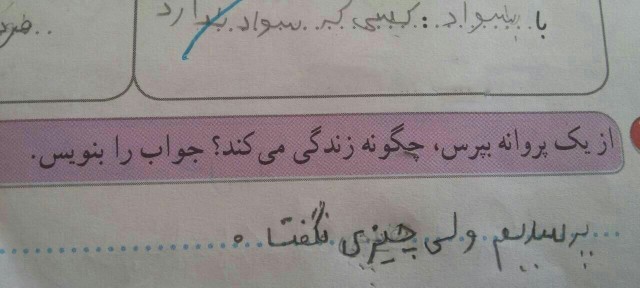 با..بیسواد..:.کسی که..سواد..ندارد
از یک پروانه بپرس، چگونه زندگی می‌کند؟ جواب را بنویس.
پرسیدیم ولی چیزی نگفت.